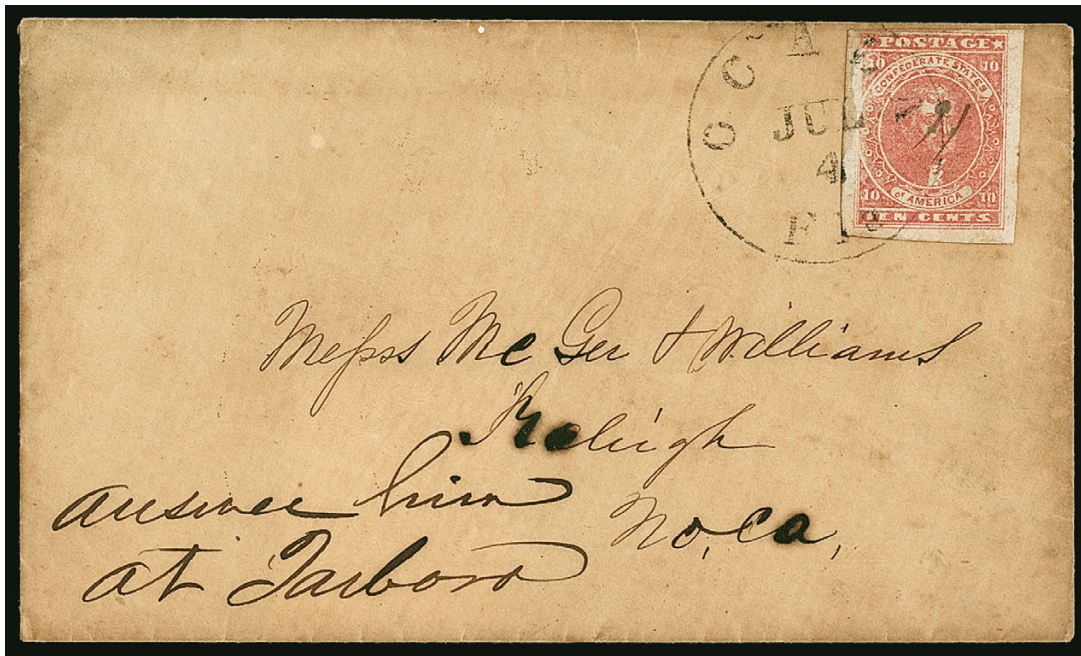 OCALA
JUL
4
Fla
POSTAGE
10 10
CONFEDERATE STATES
of AMERICA
10 10
TEN CENTS
Messrs McGee & Williams
Raleigh
No, Ca,
answer him
at Tarboro